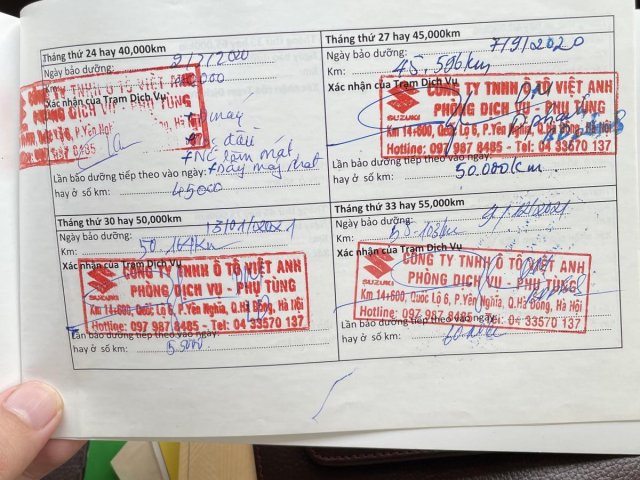 Tháng thứ 24 hay 40,000km
Ngày bảo dưỡng: 2/2/2020
Km:
Xác nhận của Trạm Dịch Vụ
CÔNG TY TNHH Ô TÔ VIỆT
PHÒNG DỊCH VỤ - PHỤ TÙNG
P.Yên Q.Hà Đông, Hà Nội
8485
+ máy
+ dầu
+ NC làm mát
Lần bảo dưỡng tiếp theo vào ngày:
hay ở số km: 45000
Tháng thứ 27 hay 45,000km
Ngày bảo dưỡng: 7/9/2020
Km: 45.596km
Xác nhận của Trạm Dịch Vụ
SUZUKI
CÔNG TY TNHH Ô TÔ VIỆT ANH
PHÒNG DỊCH VỤ - PHỤ TÙNG
Km 14+600, Quốc Lộ 6, P.Yên Nghĩa, Q.Hà Đông, Hà Nội
Hotline: 097 987 8485 - Tel: 04 33570 137
Lần bảo dưỡng tiếp theo vào ngày:
hay ở số km: 50.000km
Tháng thứ 30 hay 50,000km
Ngày bảo dưỡng: 13/01/2021
Km: 50.161km
Xác nhận của Trạm Dịch Vụ
SUZUKI
CÔNG TY TNHH Ô TÔ VIỆT ANH
PHÒNG DỊCH VỤ - PHỤ TÙNG
Km 14+600, Quốc Lộ 6, P.Yên Nghĩa, Q.Hà Đông, Hà Nội
Hotline: 097 987 8485 - Tel: 04 33570 137
Lần bảo dưỡng tiếp theo vào ngày:
hay ở số km: 55000
Tháng thứ 33 hay 55,000km
Ngày bảo dưỡng: 9/12/2021
Km: 55.103km
Xác nhận của Trạm Dịch Vụ
SUZUKI
CÔNG TY TNHH Ô TÔ VIỆT ANH
PHÒNG DỊCH VỤ - PHỤ TÙNG
Km 14+600, Quốc Lộ 6, P.Yên Nghĩa, Q.Hà Đông, Hà Nội
Hotline: 097 987 8485 - Tel: 04 33570 137
Lần bảo dưỡng tiếp theo vào ngày:
hay ở số km: